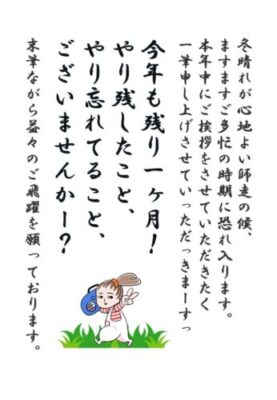 冬晴れが心地よい師走の候、
ますますご多忙の時期に恐れ入ります。
本年中にご挨拶をさせていただきたく
一筆申し上げさせていっただっきまーすっ
今年も残り一ヶ月！
やり残したこと、
やり忘れてること、
ございませんかー？
末筆ながら益々のご飛躍を願っております。